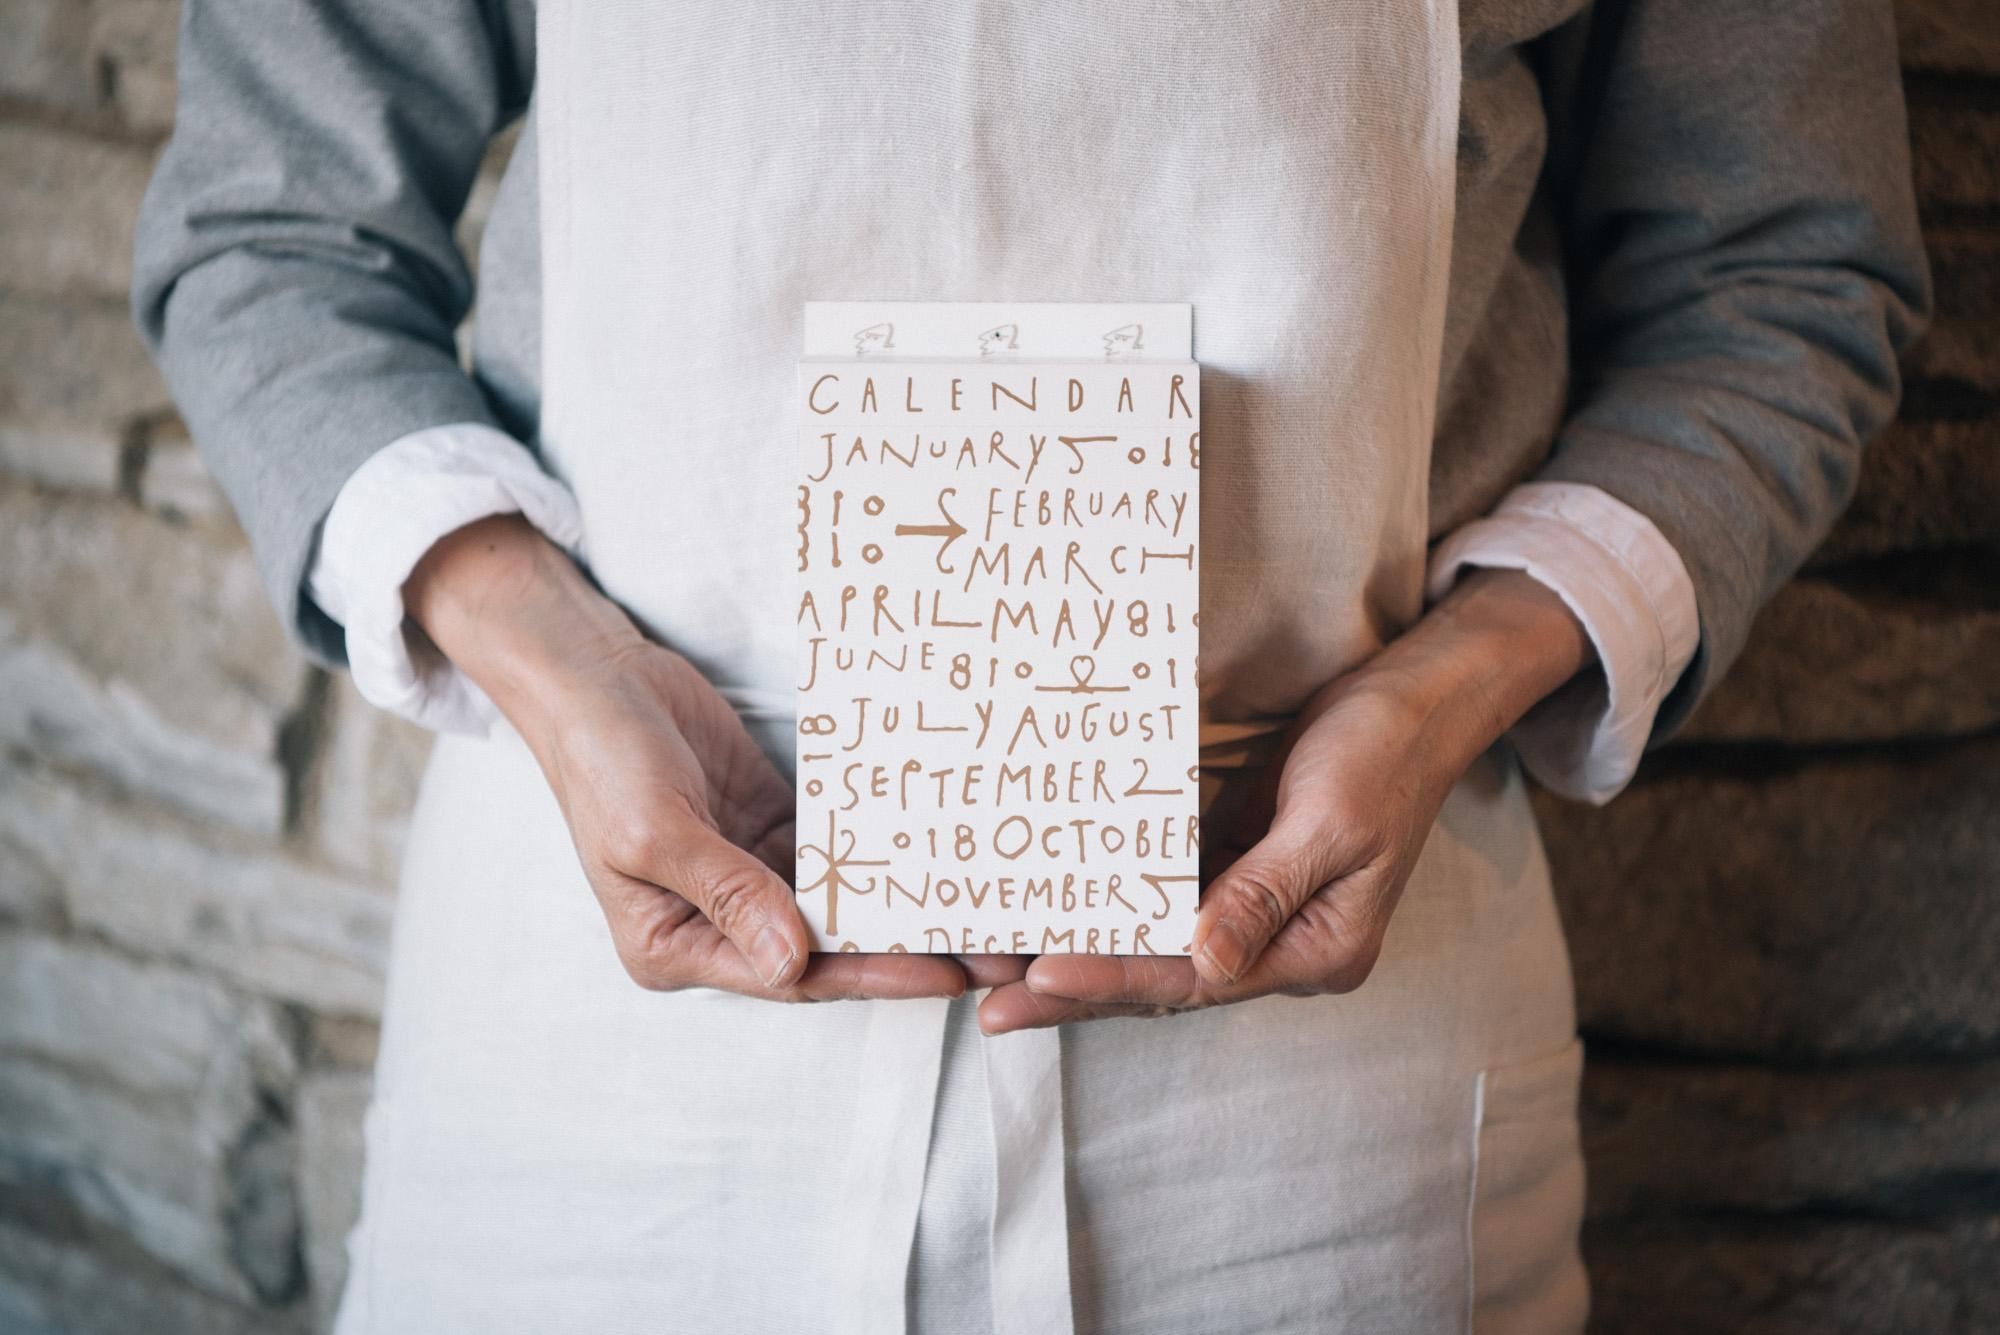 CALENDAR
JANUARY 5 018
810 → FEBRUARY
810 MARCH
APRIL MAY 810
JUNE 810 018
018 JULY AUGUST
SEPTEMBER 2 0
018 OCTOBER
NOVEMBER 5
DECEMBER